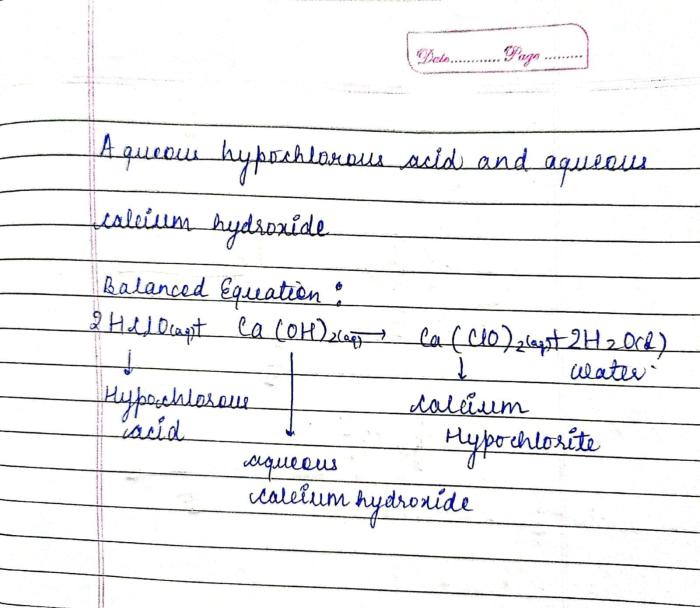 Date............ Page .........
Aqueous hypochlorous acid and aqueous
calcium hydroxide
Balanced Equation :
2HClO(aq)+ Ca(OH)2(aq) → Ca(ClO)2(aq)+ 2H2O(l)
↓ ↓ ↓ water.
Hypochlorous calcium
acid Hypochlorite
aqueous
calcium hydroxide